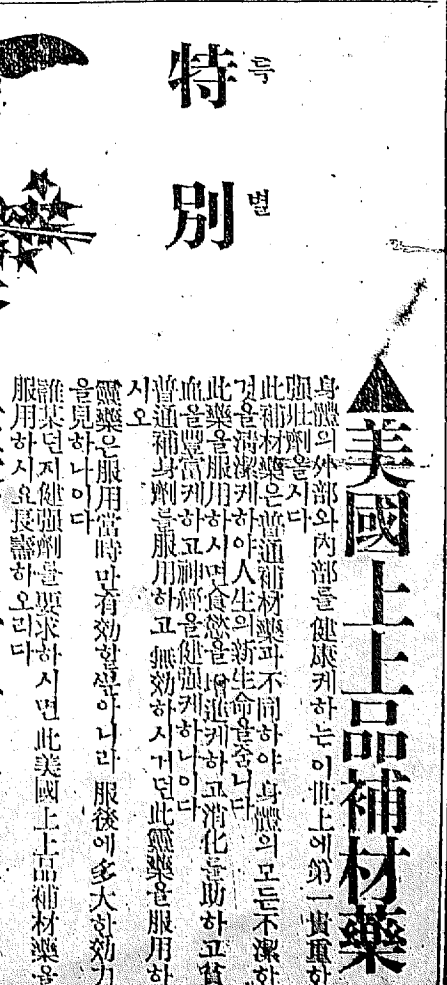 特別
특별
▲美國上上品補材藥
身體의外部와內部를健康케하는이世上에第一貴重한
强壯劑올시다
此補材藥은普通補材藥과不同하야身體의모든不潔한
것을淸潔케하야人生의新生命을줍니다
此藥을服用하시면食慾을增進케하고消化를助하고貧
血을豐富케하고神經을健强케하나이다
普通補身劑를服用하고無効하시거던此靈藥을服用하
시오
靈藥은服用當時만有効할ᄲᅮᆫ아니라服後에多大한効力
을見하나이다
誰某던지健强劑를要求하시면此美國上上品補材藥을
服用하시요長壽하오리다